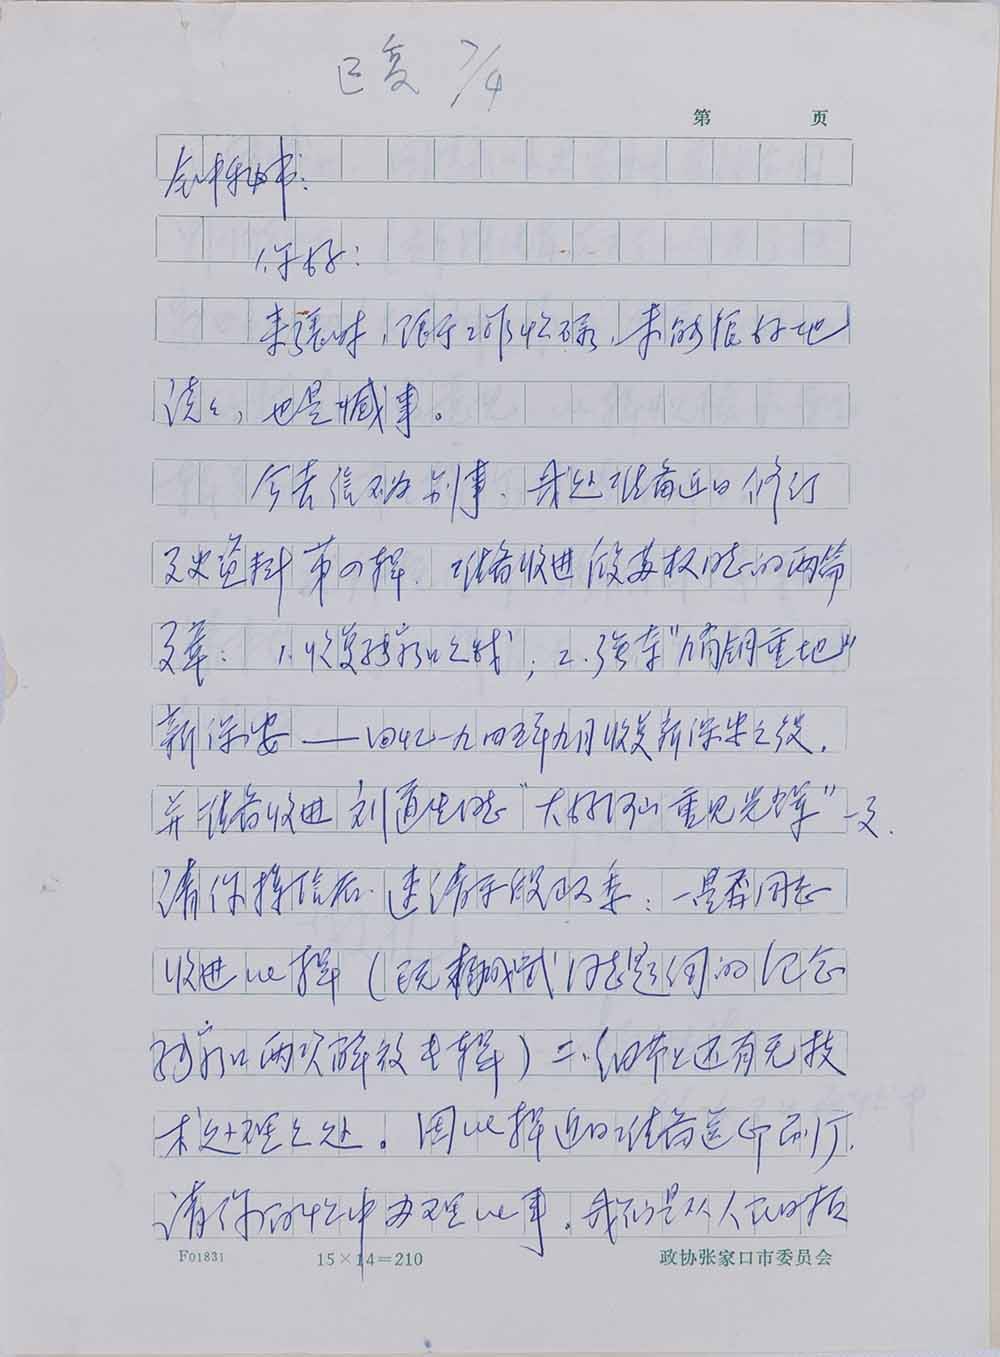 已复 7/4
第 页
秘书:
你好:
来张时,限于工作忙碌,未能很好地
谈谈,也是憾事。
今去信不为别事,我处准备近日修订
文史资料第四辑,准备收进段苏权同志的两篇
文章: 1.收复张家口之战; 2.强夺"锁钥重地"
新保安——回忆一九四五年九月收复新保安之役,
并准备收进刘道生同志"大好河山重见光辉"一文.
请你接信后速请示段政委:一是否同志
收进此辑(既 成武同志题词的纪念
张家口两次解放专辑)二、细节上还有无技
术处理之处。因此辑近日准备送印刷厂,
请你百忙中办理此事。我们是从人民日报
F01831 15×14=210 政协张家口市委员会